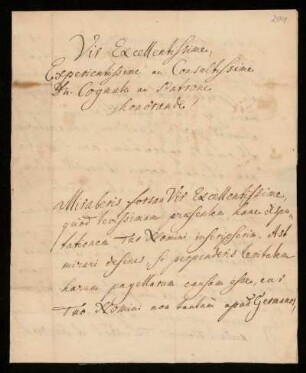 Vir Excellentissime,
Experientissime ac Consultissime
Dn. Cognate ac Patrone
honorande!
Miraberis forsan Vir Excellentissime,
quod levissimam praesentem hanc dispu
tationem Tuo Nomini inscripserim. Ast
mirari desines, si perpenderis levitatem
harum pagellarum causam esse, cur
Tuo Nomini non tantum apud Germanos,